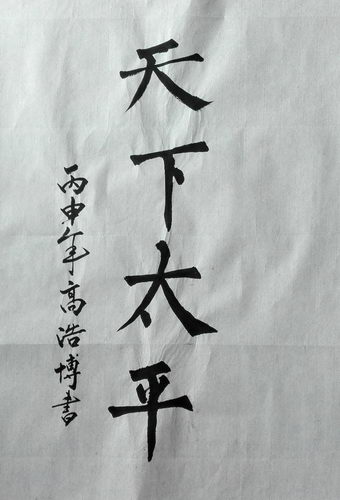 天下太平
丙申年高浩博書